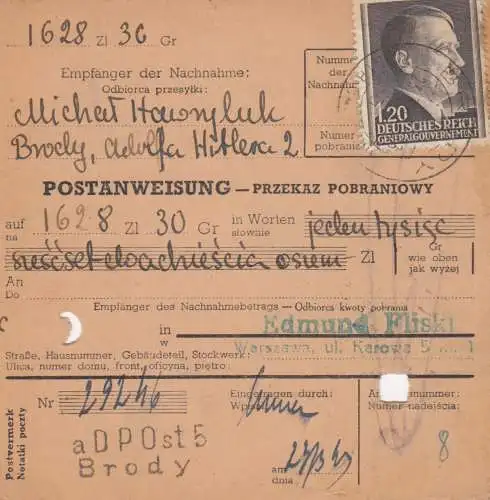 1628 Zl 30 Gr
Empfänger der Nachnahme:
Odbiorca przesyłki:
Michał Hawryluk
Brody, Adolfa Hitlera 2
Numme
der
Nachnah
Numer
pobrani
1.20
DEUTSCHES REICH
GENERALGOUVERNEMENT
POSTANWEISUNG — PRZEKAZ POBRANIOWY
auf 1628 Zl 30 Gr in Worten jeden tysiąc
na słownie
sześćset dwadzieścia osiem Zl Gr
wie oben
jak wyżej
An
Do
Empfänger des Nachnahmebetrags — Odbiorca kwoty pobrania
in Edmund Fliski
w Warszawa, ul. Karowa 5 1
Straße, Hausnummer, Gebäudeteil, Stockwerk:
Ulica, numer domu, front, oficyna, piętro:
Postvermerk
Notatki poczty
Nr 29246
Eingetragen durch:
Wp
nummer:
Numer nadejścia:
a DPOst 5
Brody
am
dnia
8